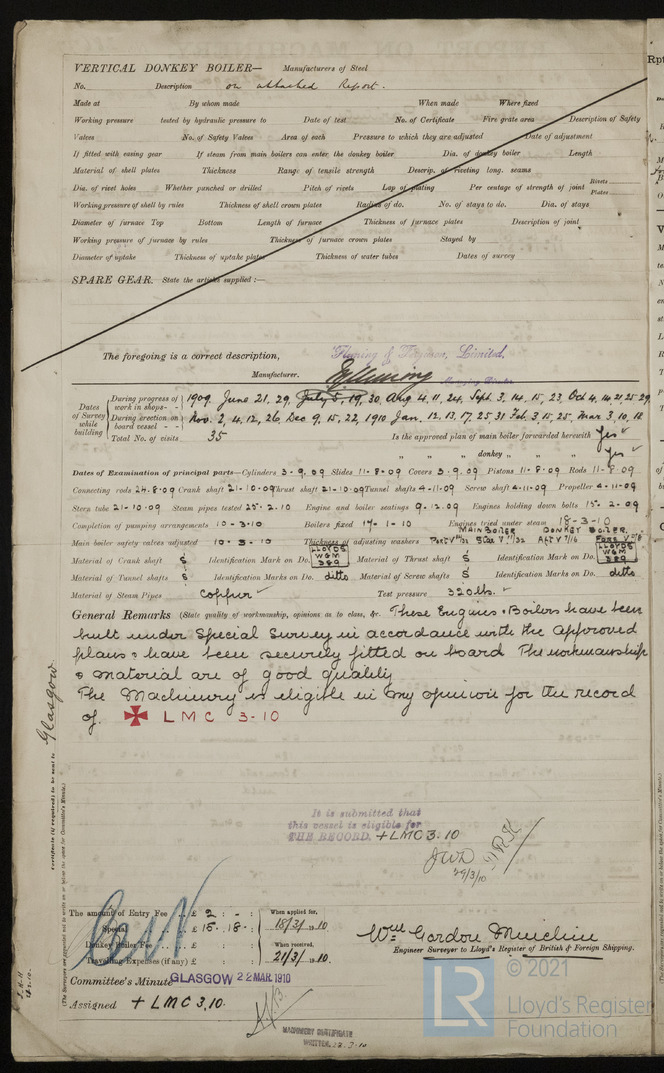 VERTICAL DONKEY BOILER— Manufacturers of Steel
No. Description on attached Report.
Made at By whom made When made Where fixed
Working pressure tested by hydraulic pressure to Date of test No. of Certificate Fire grate area Description of Safety
Valves No. of Safety Valves Area of each Pressure to which they are adjusted Date of adjustment
If fitted with easing gear If steam from main boilers can enter the donkey boiler Dia. of donkey boiler Length
Material of shell plates Thickness Range of tensile strength Descrip. of riveting long. seams
Dia. of rivet holes Whether punched or drilled Pitch of rivets Lap of plating Per centage of strength of joint Rivets Plates
Working pressure of shell by rules Thickness of shell crown plates Radius of do. No. of stays to do. Dia. of stays
Diameter of furnace Top Bottom Length of furnace Thickness of furnace plates Description of joint
Working pressure of furnace by rules Thickness of furnace crown plates Stayed by
Diameter of uptake Thickness of uptake plates Thickness of water tubes Dates of survey
SPARE GEAR. State the articles supplied :—
The foregoing is a correct description, Fleming & Ferguson, Limited.
Manufacturer. Managing Director
Dates of Survey while building
During progress of work in shops- - 1909. June 21, 29, July 5, 19, 30, Aug 4, 11, 24, Sept. 3, 14, 15, 23, Oct 4, 14, 21, 25, 29,
During erection on board vessel - - Nov. 2, 4, 12, 26, Dec 9, 15, 22, 1910 Jan. 12, 13, 17, 25, 31 Feb. 3, 15, 25, Mar 3, 10, 18
Total No. of visits 35 Is the approved plan of main boiler forwarded herewith Yes
" " " donkey " " " Yes
Dates of Examination of principal parts—Cylinders 3-9.09 Slides 11-8-09 Covers 3-9.09 Pistons 11-8.09 Rods 11-8-09
Connecting rods 24.8-09 Crank shaft 21-10-09 Thrust shaft 21-10-09 Tunnel shafts 4-11-09 Screw shaft 4-11-09 Propeller 4-11-09
Stern tube 21-10-09 Steam pipes tested 25-2.10 Engine and boiler seatings 9-12.09 Engines holding down bolts
Completion of pumping arrangements 10-3-10 Boilers fixed 17-1-10 Engines tried under steam 18-3-10
MAIN BOILER DONKEY BOILER
Main boiler safety valves adjusted 10-3-10 Thickness of adjusting washers
Material of Crank shaft S Identification Mark on Do. LLOYDS W G M 389 Material of Thrust shaft S Identification Mark on Do. LLOYDS W G M 389
Material of Tunnel shafts S Identification Marks on Do. ditto Material of Screw shafts S Identification Marks on Do. ditto
Material of Steam Pipes Copper Test pressure 320 lbs.
General Remarks (State quality of workmanship, opinions as to class, &c. These Engines & Boilers have been
built under Special Survey in accordance with the approved
plans & have been securely fitted on board The workmanship
& material are of good quality
The Machinery is eligible in my opinion for the record
of. ✠ L M C 3-10
Glasgow
certificate (if required) to be sent to
(The Surveyors are requested not to write on or below the space for Committee's Minute.)
It is submitted that
this vessel is eligible for
THE RECORD. + LMC 3.10
29/3/10
The amount of Entry Fee .. £ 2 : - : When applied for,
Special .. £ 15 : 18 : 18/3/ 1910
Donkey Boiler Fee .. £ : : When received,
Travelling Expenses (if any) £ : : 21/3/ 1910.
Wm Gordon Minchin
Engineer Surveyor to Lloyd's Register of British & Foreign Shipping.
Committee's Minute GLASGOW 22 MAR. 1910
Assigned + L M C 3.10.
MACHINERY CERTIFICATE
WRITTEN.
LR © 2021
Lloyd's Register
Foundation